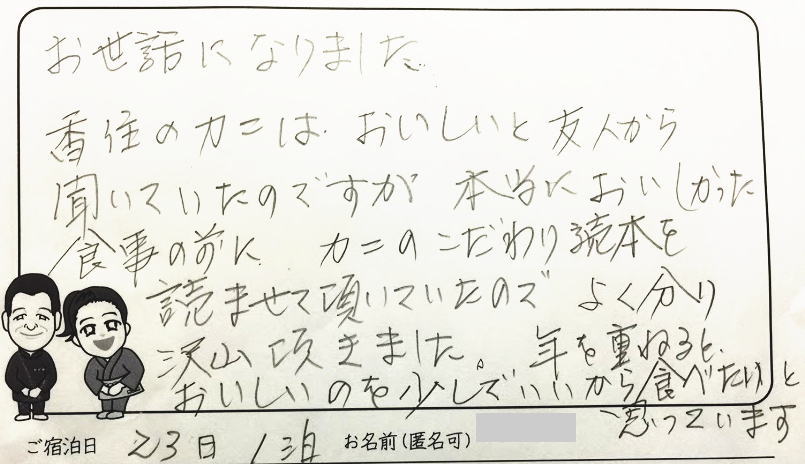 お世話になりました。
香住のカニは、おいしいと友人から
聞いていたのですが 本当においしかった
食事の前に カニのこだわり読本を
読ませて頂いていたので よく分り
沢山頂きました。年を重ねると、
おいしいのを少しでいいから食べたいと
思っています
ご宿泊日 23日 1泊 お名前(匿名可)